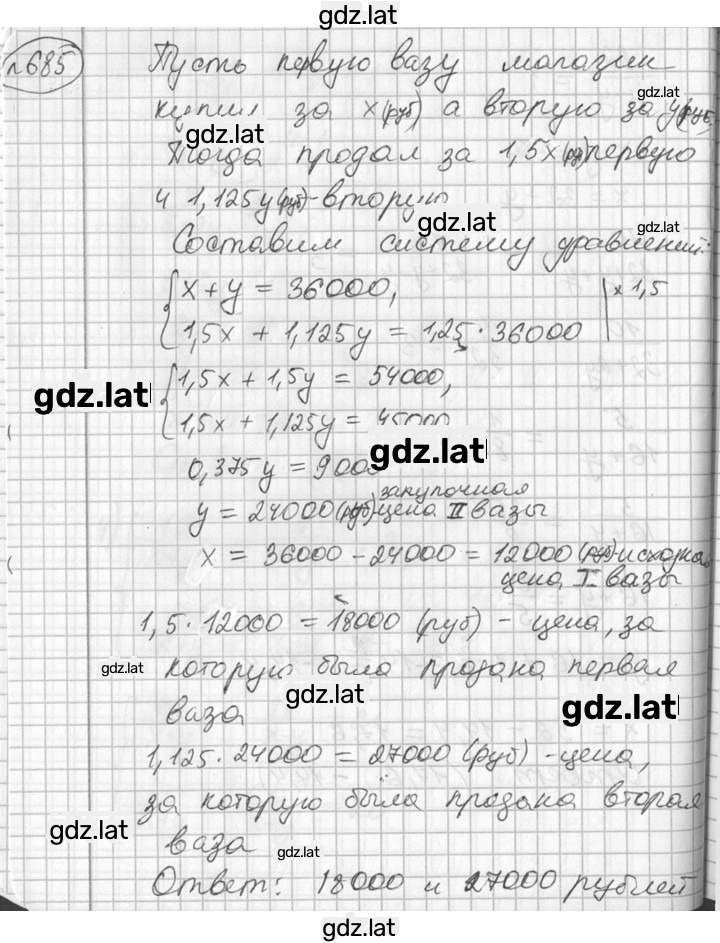 gdz.lat
№685 Пусть первую вазу магазин
gdz.lat
купил за x(руб) а вторую за y(руб)
gdz.lat
Тогда продал за 1,5x(руб) первую
и 1,125y(руб)-вторую
gdz.lat gdz.lat
Составим систему уравнений:
x + y = 36000, | × 1,5
1,5x + 1,125y = 1,25 · 36000
gdz.lat
1,5x + 1,5y = 54000,
1,5x + 1,125y = 45000
gdz.lat
0,375y = 9000
y = 24000(руб) закупочная цена II вазы
x = 36000 - 24000 = 12000 (руб)-исходная
цена I вазы
1,5 · 12000 = 18000 (руб) - цена, за
gdz.lat
которую была продана первая
gdz.lat gdz.lat
ваза
1,125 · 24000 = 27000 (руб) - цена,
за которую была продана вторая
gdz.lat
ваза
gdz.lat
Ответ: 18000 и 27000 рублей
gdz.lat